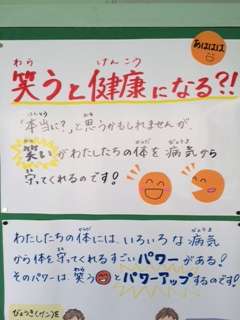 あははは
わら けんこう
笑うと健康になる?!
ほんとう おも
「本当に?」と思うかもしれませんが、
わら からだ びょうき
笑いがわたしたちの体を病気から
まも
守ってくれるのです!
からだ びょうき
わたしたちの体には、いろいろな病気
からだ まも
から体を守ってくれるすごいパワーがある!
わら
そのパワーは、笑うとパワーアップするのです!
びょうき(げん)を